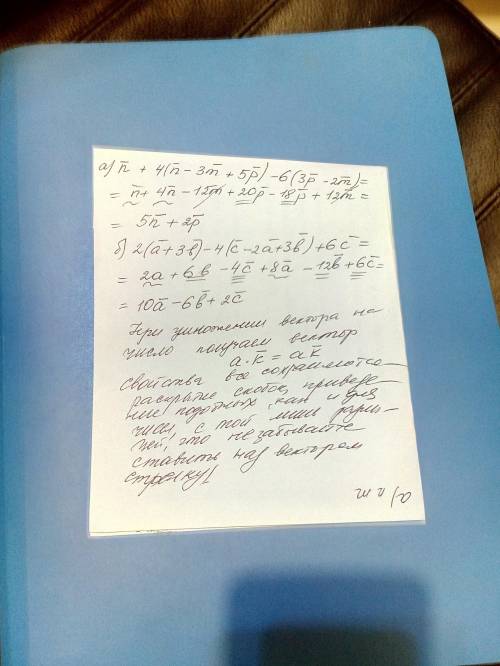 а) n̄ + 4(n̄ - 3m̄ + 5p̄) - 6(3p̄ - 2m̄) =
= n̄ + 4n̄ - 12m̄ + 20p̄ - 18p̄ + 12m̄ =
= 5n̄ + 2p̄
б) 2(ā + 3b̄) - 4(c̄ - 2ā + 3b̄) + 6c̄ =
= 2ā + 6b̄ - 4c̄ + 8ā - 12b̄ + 6c̄ =
= 10ā - 6b̄ + 2c̄
При умножении вектора на
число получаем вектор
a · k̄ = ak̄
Свойства все сохраняются
раскрытие скобок, приведе-
ние подобных, как и для
чисел, с той лишь разни-
цей, что не забывайте
ставить над вектором
стрелку!